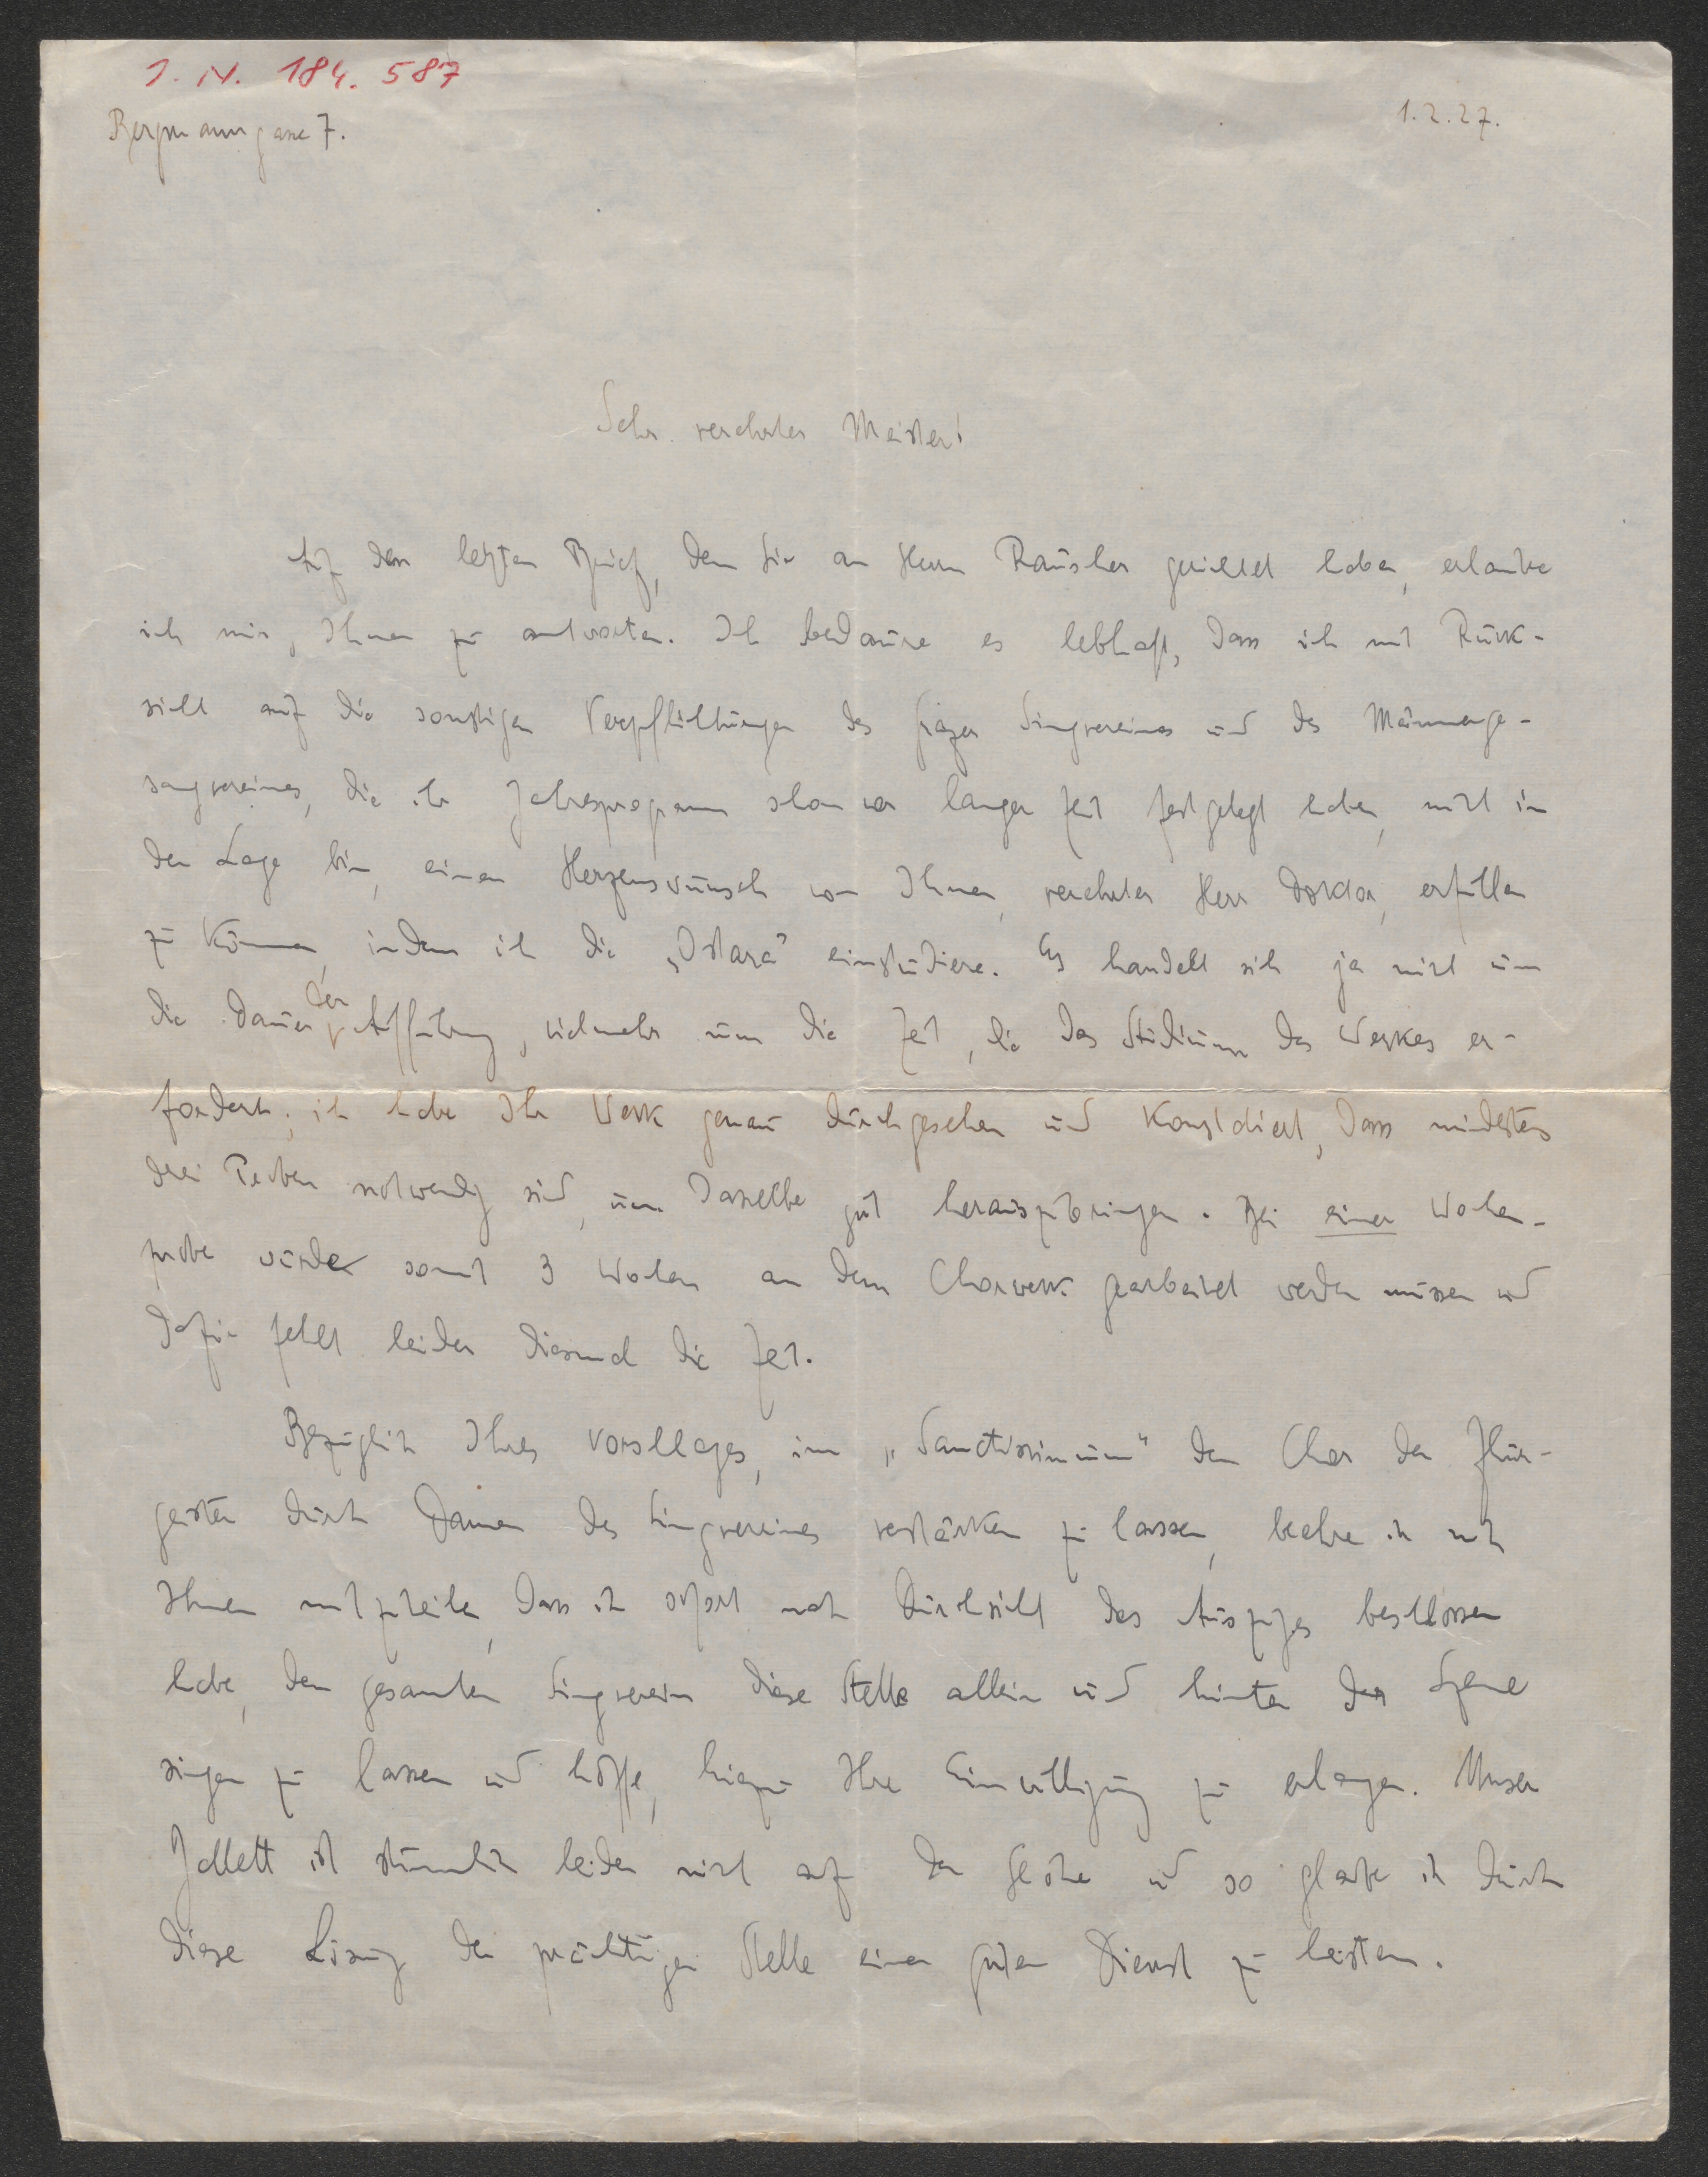 I. N. 184.587
Bergmanngasse 7.
1.2.27.
Sehr verehrter Meister!
Auf den letzten Brief, den Sie an Herrn Räusler gerichtet haben, erlaube
ich mir, Ihnen zu antworten. Ich bedaure es lebhaft, dass ich mit Rück-
sicht auf die sonstigen Verpflichtungen des Grazer Singvereines und des Männerge-
sangvereines, die ihr Jahresprogramm schon vor langer Zeit festgelegt haben, nicht in
der Lage bin, einen Herzenswunsch von Ihnen, verehrter Herr Doktor, erfüllen
zu können, indem ich die „Ostara" einstudiere. Es handelt sich ja nicht um
die Dauer der Aufführung, vielmehr um die Zeit, die das Studium des Werkes er-
fordert; ich habe Ihr Werk genau durchgesehen und konstatiert, dass mindestens
drei Proben notwendig sind, um dasselbe gut herauszubringen. Bei einer Wochen-
probe würde somit 3 Wochen an dem Chorwerk gearbeitet werden müssen und
dafür fehlt leider diesmal die Zeit.
Bezüglich Ihres Vorschlages, im „Sanctissimum" den Chor der Flur-
geister durch Damen des Singvereines verstärken zu lassen, beehre ich mich
Ihnen mitzuteilen, dass ich sofort nach Durchsicht des Auszuges beschlossen
habe, den gesamten Singverein diese Stelle allein und hinter der Szene
singen zu lassen und hoffe, hiezu Ihre Einwilligung zu erlangen. Unser
Ballett ist stimmlich leider nicht auf der Höhe und so glaube ich durch
diese Lösung der prächtigen Stelle einen guten Dienst zu leisten.